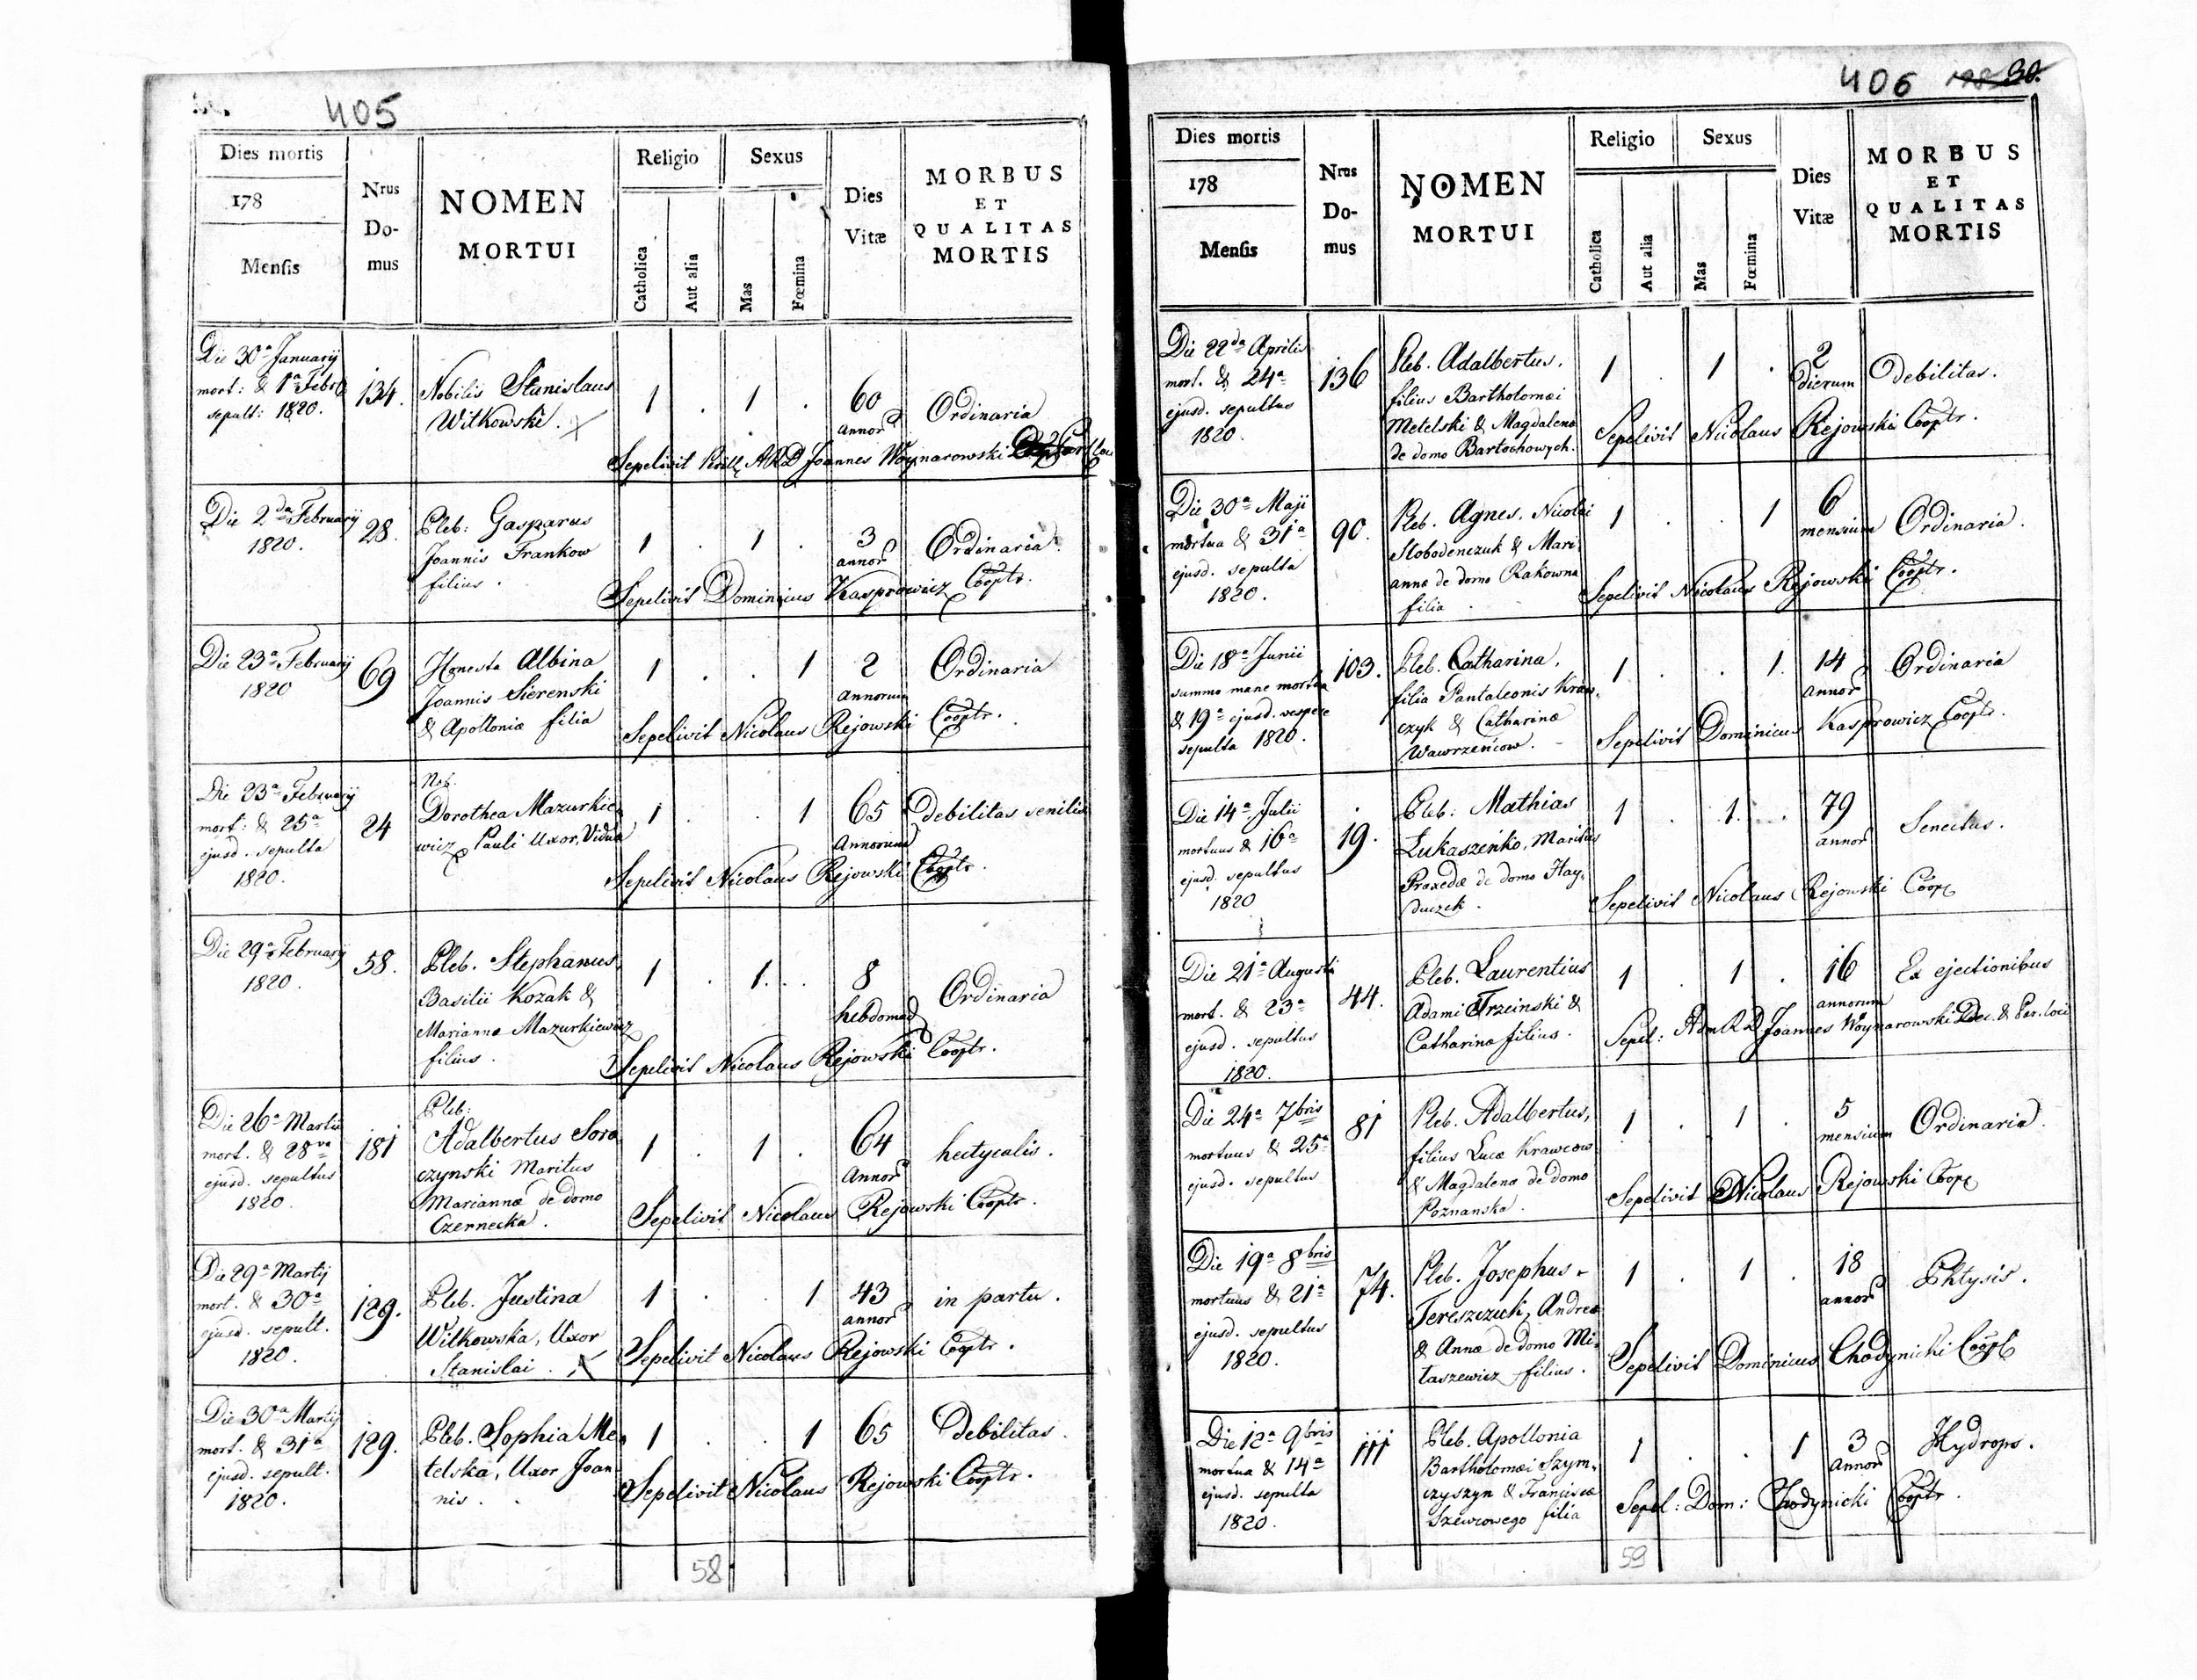 405
Dies mortis
178
Mensis
Nrus
Do-
mus
NOMEN
MORTUI
Religio
Catholica
Aut alia
Sexus
Mas
Fœmina
Dies
Vitæ
MORBUS
ET
QUALITAS
MORTIS
Die 30a Januarij
mort: & 1a Febr
sepult: 1820.
134.
Nobilis Stanislaus
Witkowski. X
1 . 1 .
60
Annor
Ordinaria
Sepelivit Joannes Woynarowski
Die 2da Februarij
1820.
28.
Pleb: Gasparus
Joannis Frankow
filius.
1 . 1 .
3
annor
Ordinaria.
Sepelivit Dominicus Kasprowicz Cooptr.
Die 23a Februarij
1820
69
Honesta Albina
Joannis Sierenski
& Apolloniæ filia
1 . . 1
2
Annorum
Ordinaria
Sepelivit Nicolaus Rejowski Cooptr.
Die 23a Februarij
mort: & 25a
ejusd. sepulta
1820.
24
Nob.
Dorothea Mazurkie
wicz Pauli Uxor, Vidua
1 . . 1
65
Annorum
debilitas senilis
Sepelivit Nicolaus Rejowski Cooptr.
Die 29a Februarij
1820.
58.
Pleb. Stephanus,
Basilii Kozak &
Marianna Mazurkiewicz
filius.
1 . 1 . .
8
hebdomad
Ordinaria
Sepelivit Nicolaus Rejowski Cooptr.
Die 26a Martii
mort. & 28va
ejusd. sepultus
1820.
181
Pleb:
Adalbertus Soro
czynski Maritus
Mariannæ de domo
Czernecka.
1 . 1 .
64
Annor
hectycalis.
Sepelivit Nicolaus Rejowski Cooptr.
Die 29a Martij
mort. & 30a
ejusd. sepult.
1820.
129.
Pleb. Justina
Witkowska, Uxor
Stanislai. X
1 . . 1
43
annor
in partu.
Sepelivit Nicolaus Rejowski Cooptr.
Die 30a Martij
mort. & 31a
ejusd. sepult.
1820.
129.
Pleb. Sophia Me
telska, Uxor Joan
nis.
1 . . 1
65
Debilitas.
Sepelivit Nicolaus Rejowski Cooptr.
58
406 30.
Dies mortis
178
Mensis
Nrus
Do-
mus
NOMEN
MORTUI
Religio
Catholica
Aut alia
Sexus
Mas
Fœmina
Dies
Vitæ
MORBUS
ET
QUALITAS
MORTIS
Die 22da Aprilis
mort. & 24a
ejusd. sepultus
1820.
136
Pleb. Adalbertus,
filius Bartholomæi
Metelski & Magdalena
de domo Bartochowych.
1 . 1 .
2
dierum
Debilitas.
Sepelivit Nicolaus Rejowski Cooptr.
Die 30a Maji
mortua & 31a
ejusd. sepulta
1820.
90.
Pleb. Agnes, Nicolai
Slobodenczuk & Mari
anna de domo Rakowna
filia.
1 . . 1
6
mensium
Ordinaria.
Sepelivit Nicolaus Rejowski Cooptr.
Die 18a Junii
summo mane mortua
& 19a ejusd. vespere
sepulta 1820.
103.
Pleb. Catharina,
filia Pantaleonis Kraw
czyk & Catharinæ
Wawrzeńcow.
1 . . 1.
14
Annor
Ordinaria
Sepelivit Dominicus Kasprowicz Cooptr.
Die 14a Julii
mortuus & 16a
ejusd. sepultus
1820
19.
Pleb: Mathias
Łukaszeńko, Maritus
Praxedæ de domo Hay,
duczek.
1 . 1 . .
79
annor
Senectus.
Sepelivit Nicolaus Rejowski Coop
Die 21a Augusti
mort. & 23a
ejusd. sepultus
1820.
44.
Pleb. Laurentius
Adami Trzcinski &
Catharinæ filius.
1 . 1 .
16
annorum
Ex ejectionibus
Sepel: Adm R D Joannes Woynarowski Dec. & Par. loci
Die 24a 7bris
mortuus & 25a
ejusd. sepultus
81
Pleb. Adalbertus,
filius Lucæ Krawcow
& Magdalena de domo
Poznanska.
1 . 1 .
5
mensium
Ordinaria.
Sepelivit Nicolaus Rejowski Coop
Die 19a 8bris
mortuus & 21a
ejusd. sepultus
1820.
74.
Pleb. Josephus
Tereszczuk, Andreæ
& Annæ de domo Mi
taszewicz filius.
1 . 1 .
18
annor
Phtysis.
Sepelivit Dominicus Chodynicki Coopt
Die 12a 9bris
mortua & 14a
ejusd. sepulta
1820.
111
Pleb. Apollonia
Bartholomæi Szym,
czyszyn & Franciscæ
Szewcowego filia
1 . . 1
3
Annor
Hydrops.
Sepel: Dom: Chodynicki Cooptr.
59